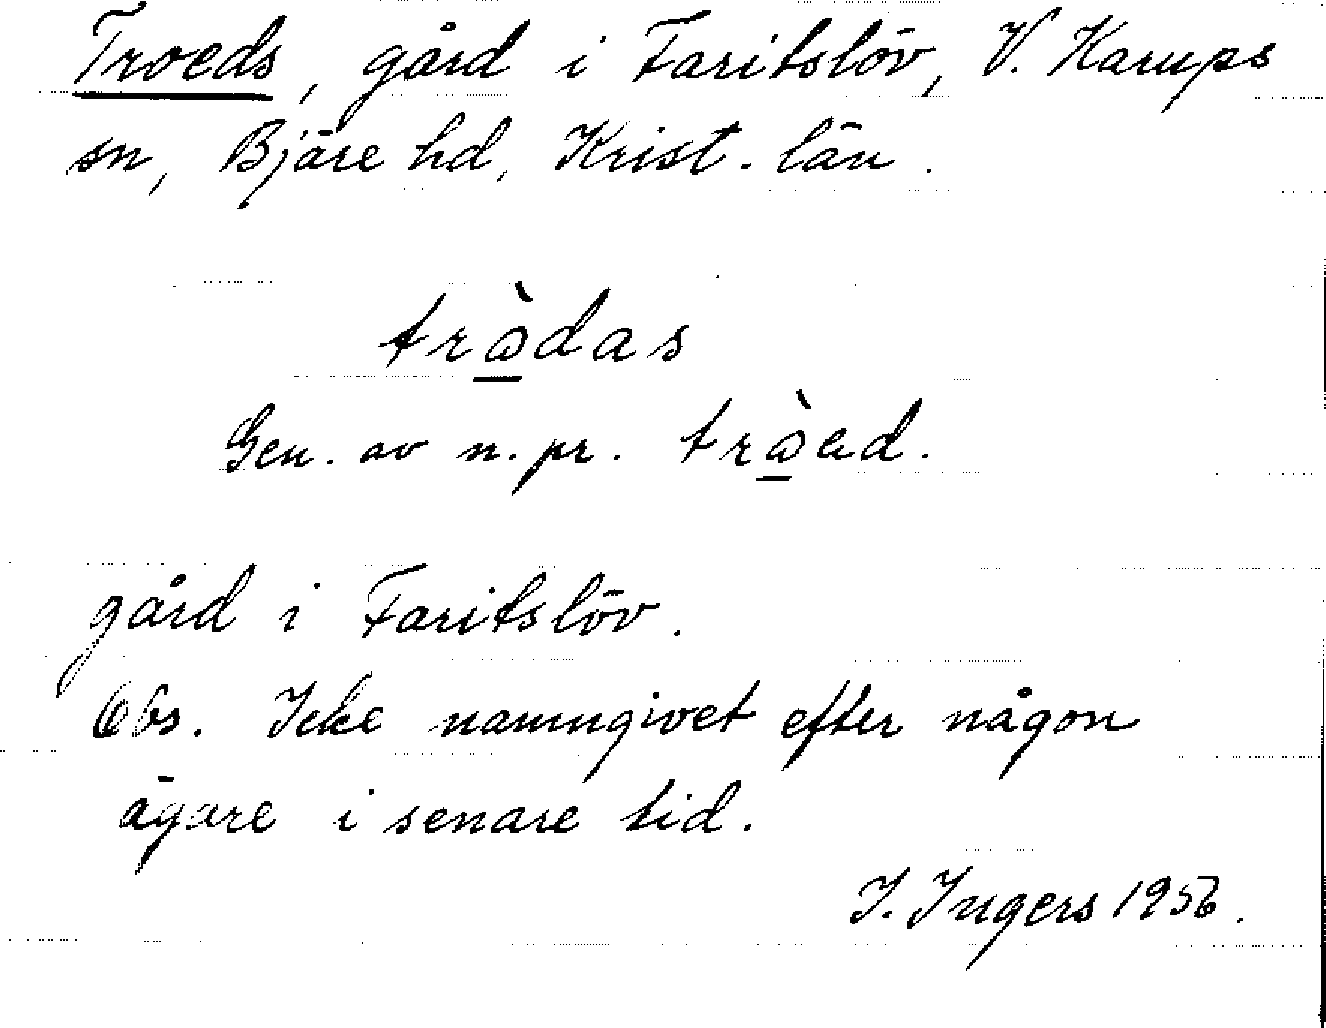 Troeds, gård i Faritslöv, V. Karups
sn, Bjäre hd, Krist. län.
trὰ̱das
Gen. av n. pr. trὰ̱ed.
gård i Faritslöv.
Obs. Icke namngivet efter någon
ägare i senare tid.
I. Ingers 1956.